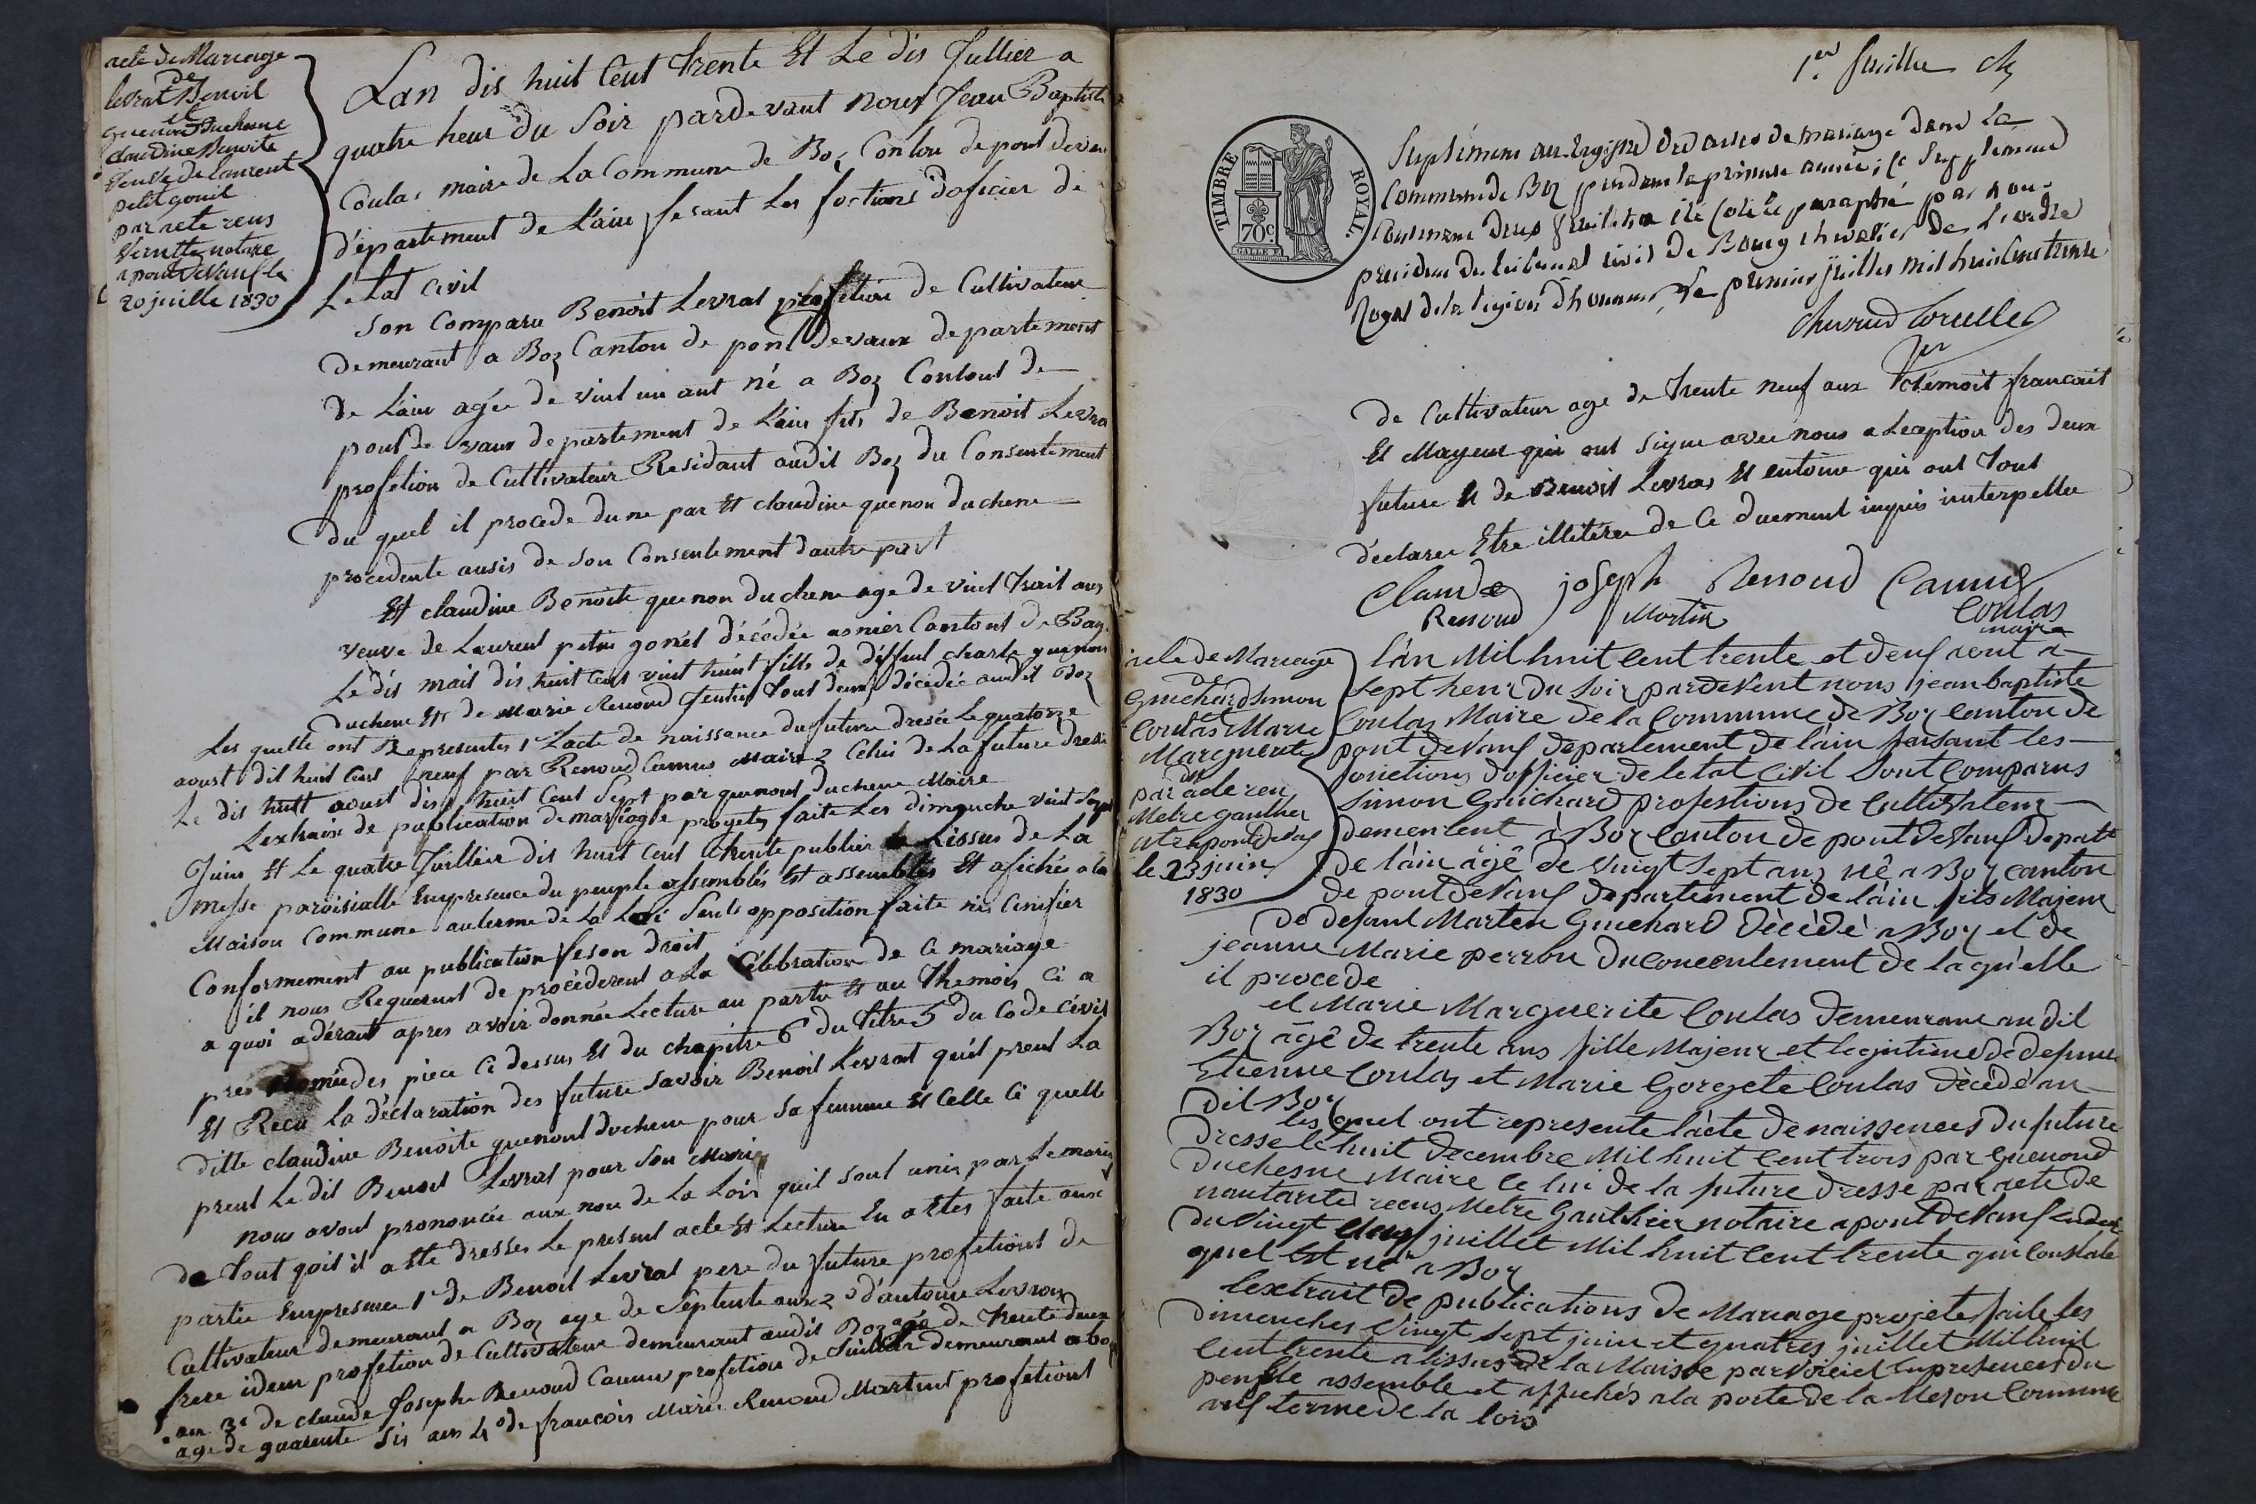 acte de Mariage
de
levrat Benoit
et
quenon Duchene
claudine Benoite
veuve de laurent
petit gonil
par acte reus
notare
a pont Devauf le
20 juille 1830
Lan dis huit Cent trente Et Le dis Jullier a
quatre heur du Soir pardevant nous Jean Baptiste
Coulas maire de La Commune de Boz Conton de pont devau
d'épartement de L'ain fesant Les foctions doficier de
Letat Civil
Son Comparu Benoit Levrat profetion de Cultivateur
Demeurant a Boz Canton de pont devaux departement
de L'ain agée de vint un ant né a Boz Contont de
pont de vaux departement de L'ain fils de Benoit Levra
profetion de Cultivateur Residant audit Boz du Consentement
du quel il procede dune par Et claudine quenon duchene
procedente ausis de Son Consentement dautre part
Et claudine Benoite quenon duchene age de vint trait ans
veuve de Laurent petit gonét décédée asnier Contont de Bag
Le dis mait dis huit Cent vint huit fille de diffunt charle quenon
duchene Et de Marie Renoud feutier tout deux décédée audit Boz
Les quelle ont Representer 1° Lacte de naissance du future dresée Le quatorze
aoust dit huit Cent neuf par Renoud Camus Maire 2 Celui de La future dresse
Le dis huit aoust dis huit Cent Sept par quenont duchene Maire
Lextrais de puplication de mariage progetes faite Les dimanche vint Sept
Juin Et Le quatre Juillier dis huit Cent trente publier Lissus de La
messe paroisialle Enpresence du peuple assemblés Et assembles Et afichés a la
Maison Commune auterme de La Loi Sents opposition faite ni Cinifier
Conformement au publication feson droit
il nous Requerent de procéderent a La Célebration de Ce mariage
a quoi adérant apres avoir donnée Lecture au partie Et au themois Ci a
pres des piece Ci dessus Et du chapitre 6 du titre 5 du Code Civil
Et Recu la déclaration des future Savoir Benoit Levrat quil prent La
ditte claudine Benoite quenont duchene pour Sa femme Et Celle Ci quelle
prent Le dit Benoit Levrat pour Son Marie
nous avont prononcée aux nom de La Loix quil sont unis par Le marie
de tout qoit il a tte dresser Le present acte Et Lecture En a Etes faite aux
partie Enpresence 1° de Benoit Levrat pere du future profetiont de
Cultivateur demeurant a Boz age de Septente ans 2° d'antoine Levrat
frere idem profetion de Cultivateur demeurant audit Boz age de trente deux
an 3° de claude Joseph Renoud Camus profetion de demeurant a boz
age de quarente Sis ans 4° de francois Marie Renoud Martint profetiont
1.er feuillet
TIMBRE ROYAL.
70c.
Suplément au regyste des actes de mariage dans la
Commune de Boz pendant la présente année; Ce Supplement
Contenant deux feuillets a été Coté et paraphé par nous
président du tribunal civil de Bourg chevalier de L'ordre
Royal de la legion d'honneur, Le premier juillet mil huit Cent trente
de Cultivateur age de trente neuf ans témoit francait
Et Mayeur qui ont Signe avec nous a Leception des deux
future Et de Benoit Levras Et entoine qui ont tout
déclaree Etre illitéree de Ce duement inquis interpellee
Claude joseph Renoud Camus
Renoud Martin Coulas
maire
acte de Mariage
de
Guichard Simon
et
Coulas Marie
Marguerite
par acte reu
Metre gauthier
nt a pont de Vaf
le 23 juin
1830
l'an Mil huit Cent trente et deuf aout a
Sept heur du Soir pardevent nous jean baptiste
Coulas Maire de la Commune de Boz Canton de
pont de Vauf departement de l'ain faisant les
fonctions d'officier de letat Civil Sont Comparus
Simon Guichard profestions de Cultivateur
demeurent à Boz Canton de pont de Vauf depatt
de l'ain âgê de vuigt Sept ans nê a Boz canton
de pont de Vauf departement de l'ain fils Majeur
de defant Marten Guichard dècèdè a Boz et de
jeanne Marie perron du Concentement de laquelle
il procede
et Marie Marguerite Coulas demeurant au dit
Boz âgê de trente ans fille Majeur et legitime de defunt
Etienne Coulas et Marie Gorgete Coulas dècèdè au
dit Boz
les quel ont represente l'acte de naissences du future
dresse le huit decembre Mil huit Cent trois par Guenoud
duchesne Maire ce lui de la future dresse par acte de
nautarite recus Metre Gauthier notaire a pont de Vauf
du Vingt deuf juillet Mil huit Cent trente qui Constate
quel Est né a Boz
lextrait de publications de Mariage projete faite les
dimenches Vingt Sept juin et quatres juillet Mil huit
Cent trente a lissus de la Maisse parvoiciel Enpresences du
peufle assemble et affichés a la porte de la Meson Commune
auf termede la lois